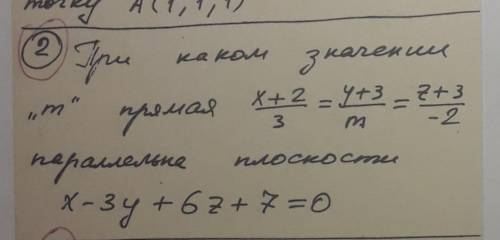 точку A(1,1,1)
② При каком значении
„m" прямая (x+2)/3 = (y+3)/m = (z+3)/-2
параллельна плоскости
x - 3y + 6z + 7 = 0